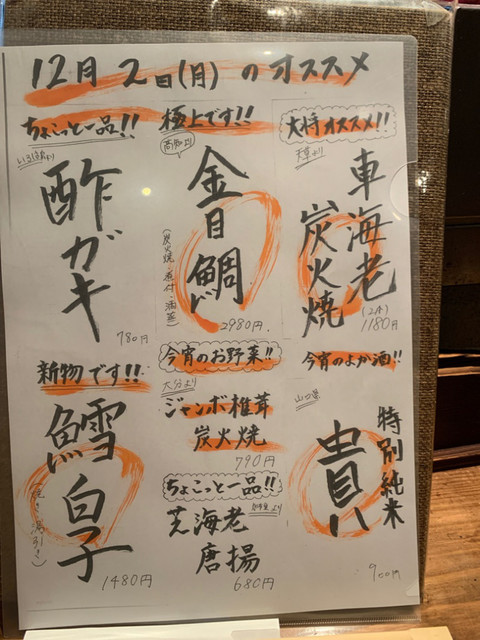 12月2日(月)のオススメ
大将オススメ!!
天草より
車海老
炭火焼
(2本)
1180円
極上です!!
高知より
金目鯛
(炭火焼・煮付・酒蒸)
2980円
ちょこっと一品!!
酢ガキ
780円
今宵のよか酒!!
山口県
特別純米
貴
900円
今宵のお野菜!!
大分より
ジャンボ椎茸
炭火焼
790円
ちょこっと一品!!
より
芝海老
唐揚
680円
新物です!!
鱈白子
(焼き・湯引き)
1480円